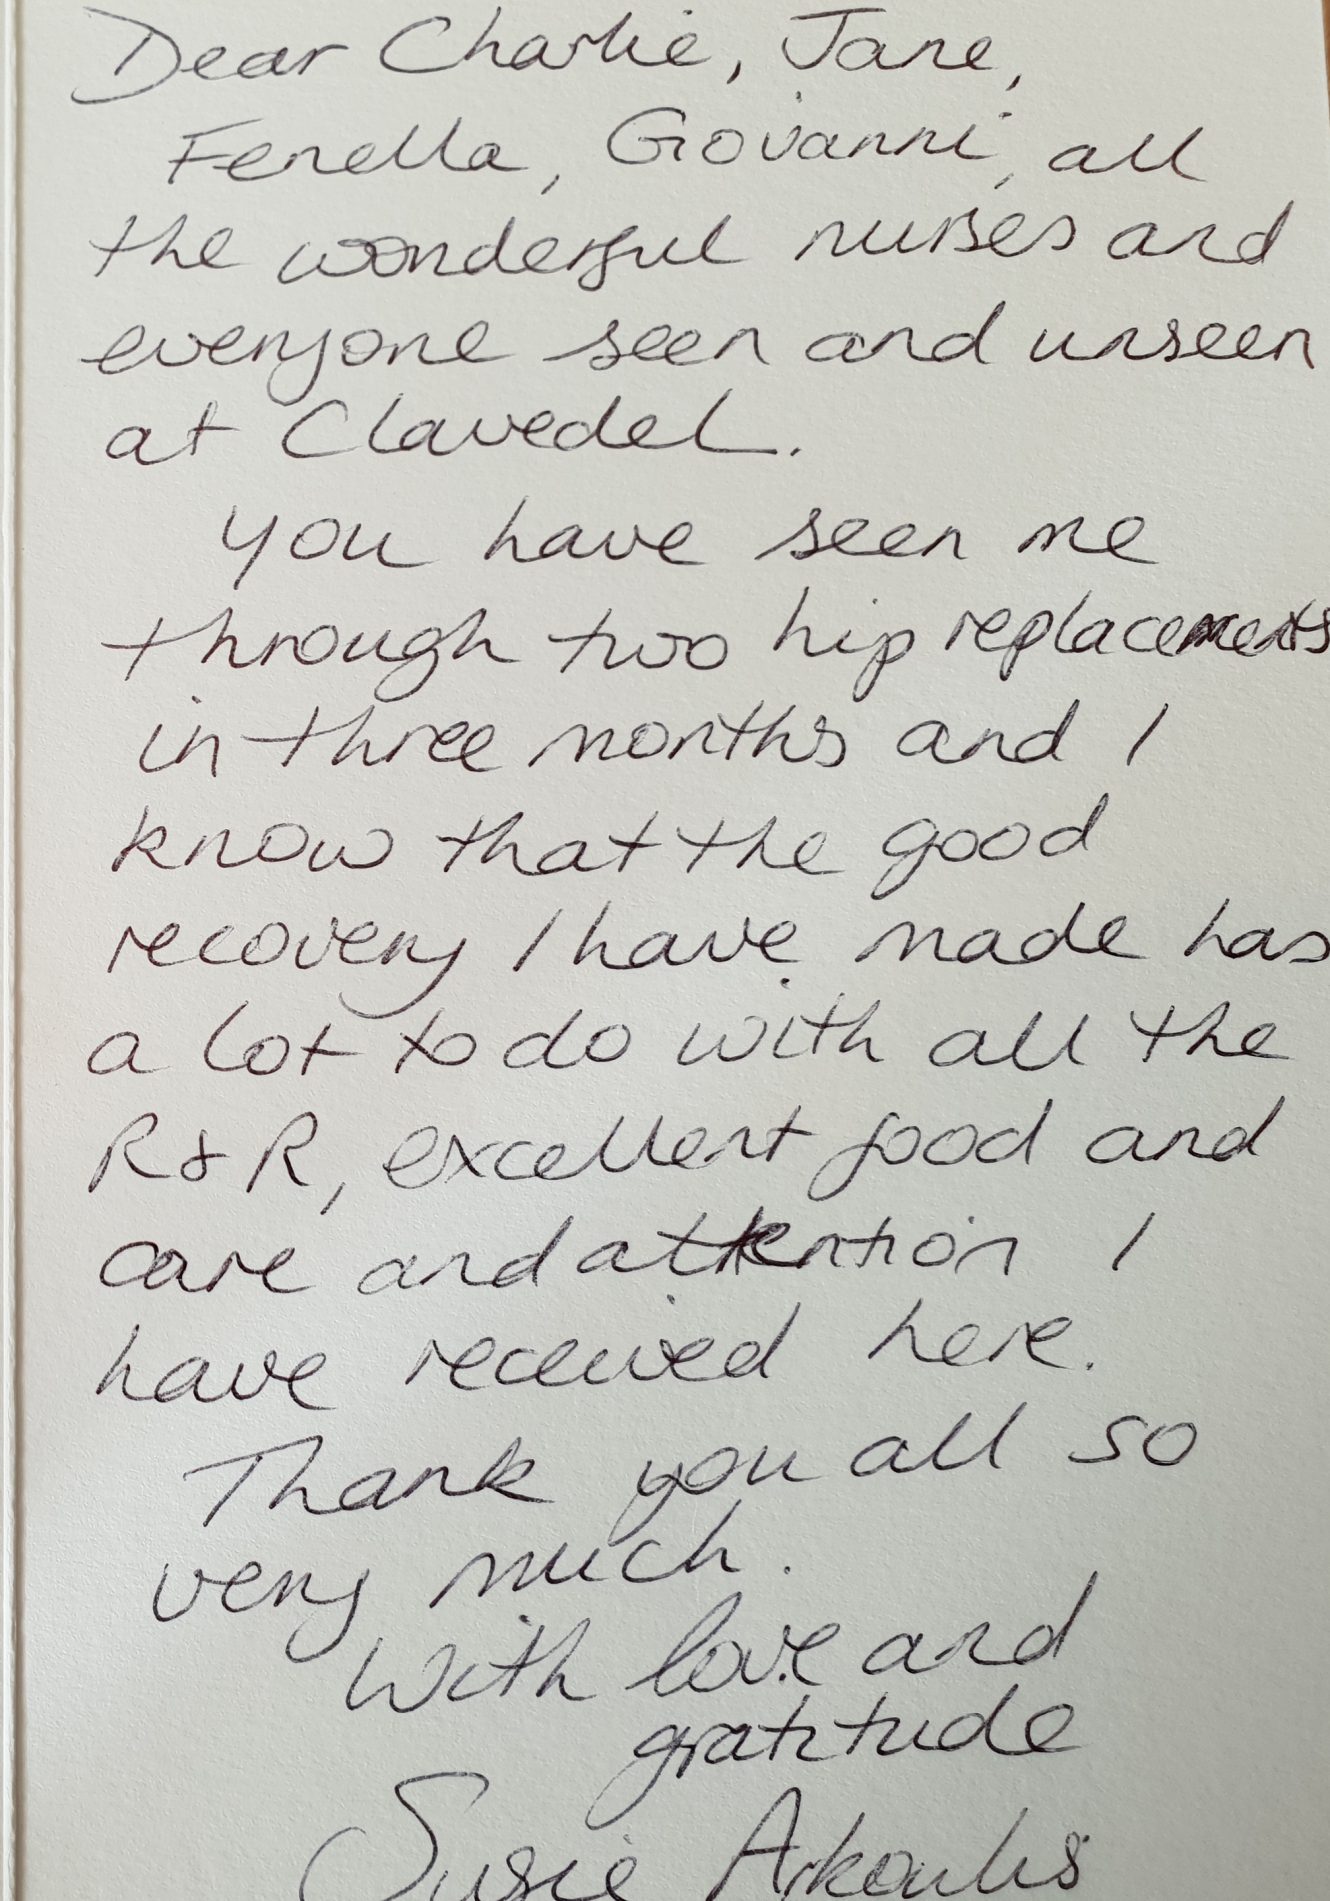 Dear Charlie, Jane,
Fenella, Giovanni, all
the wonderful nurses and
everyone seen and unseen
at Clavedel.
you have seen me
through two hip replacements
in three months and I
know that the good
recovery I have made has
a lot to do with all the
R & R, excellent food and
care and attention I
have received here.
Thank you all so
very much.
With love and
gratitude
Susie